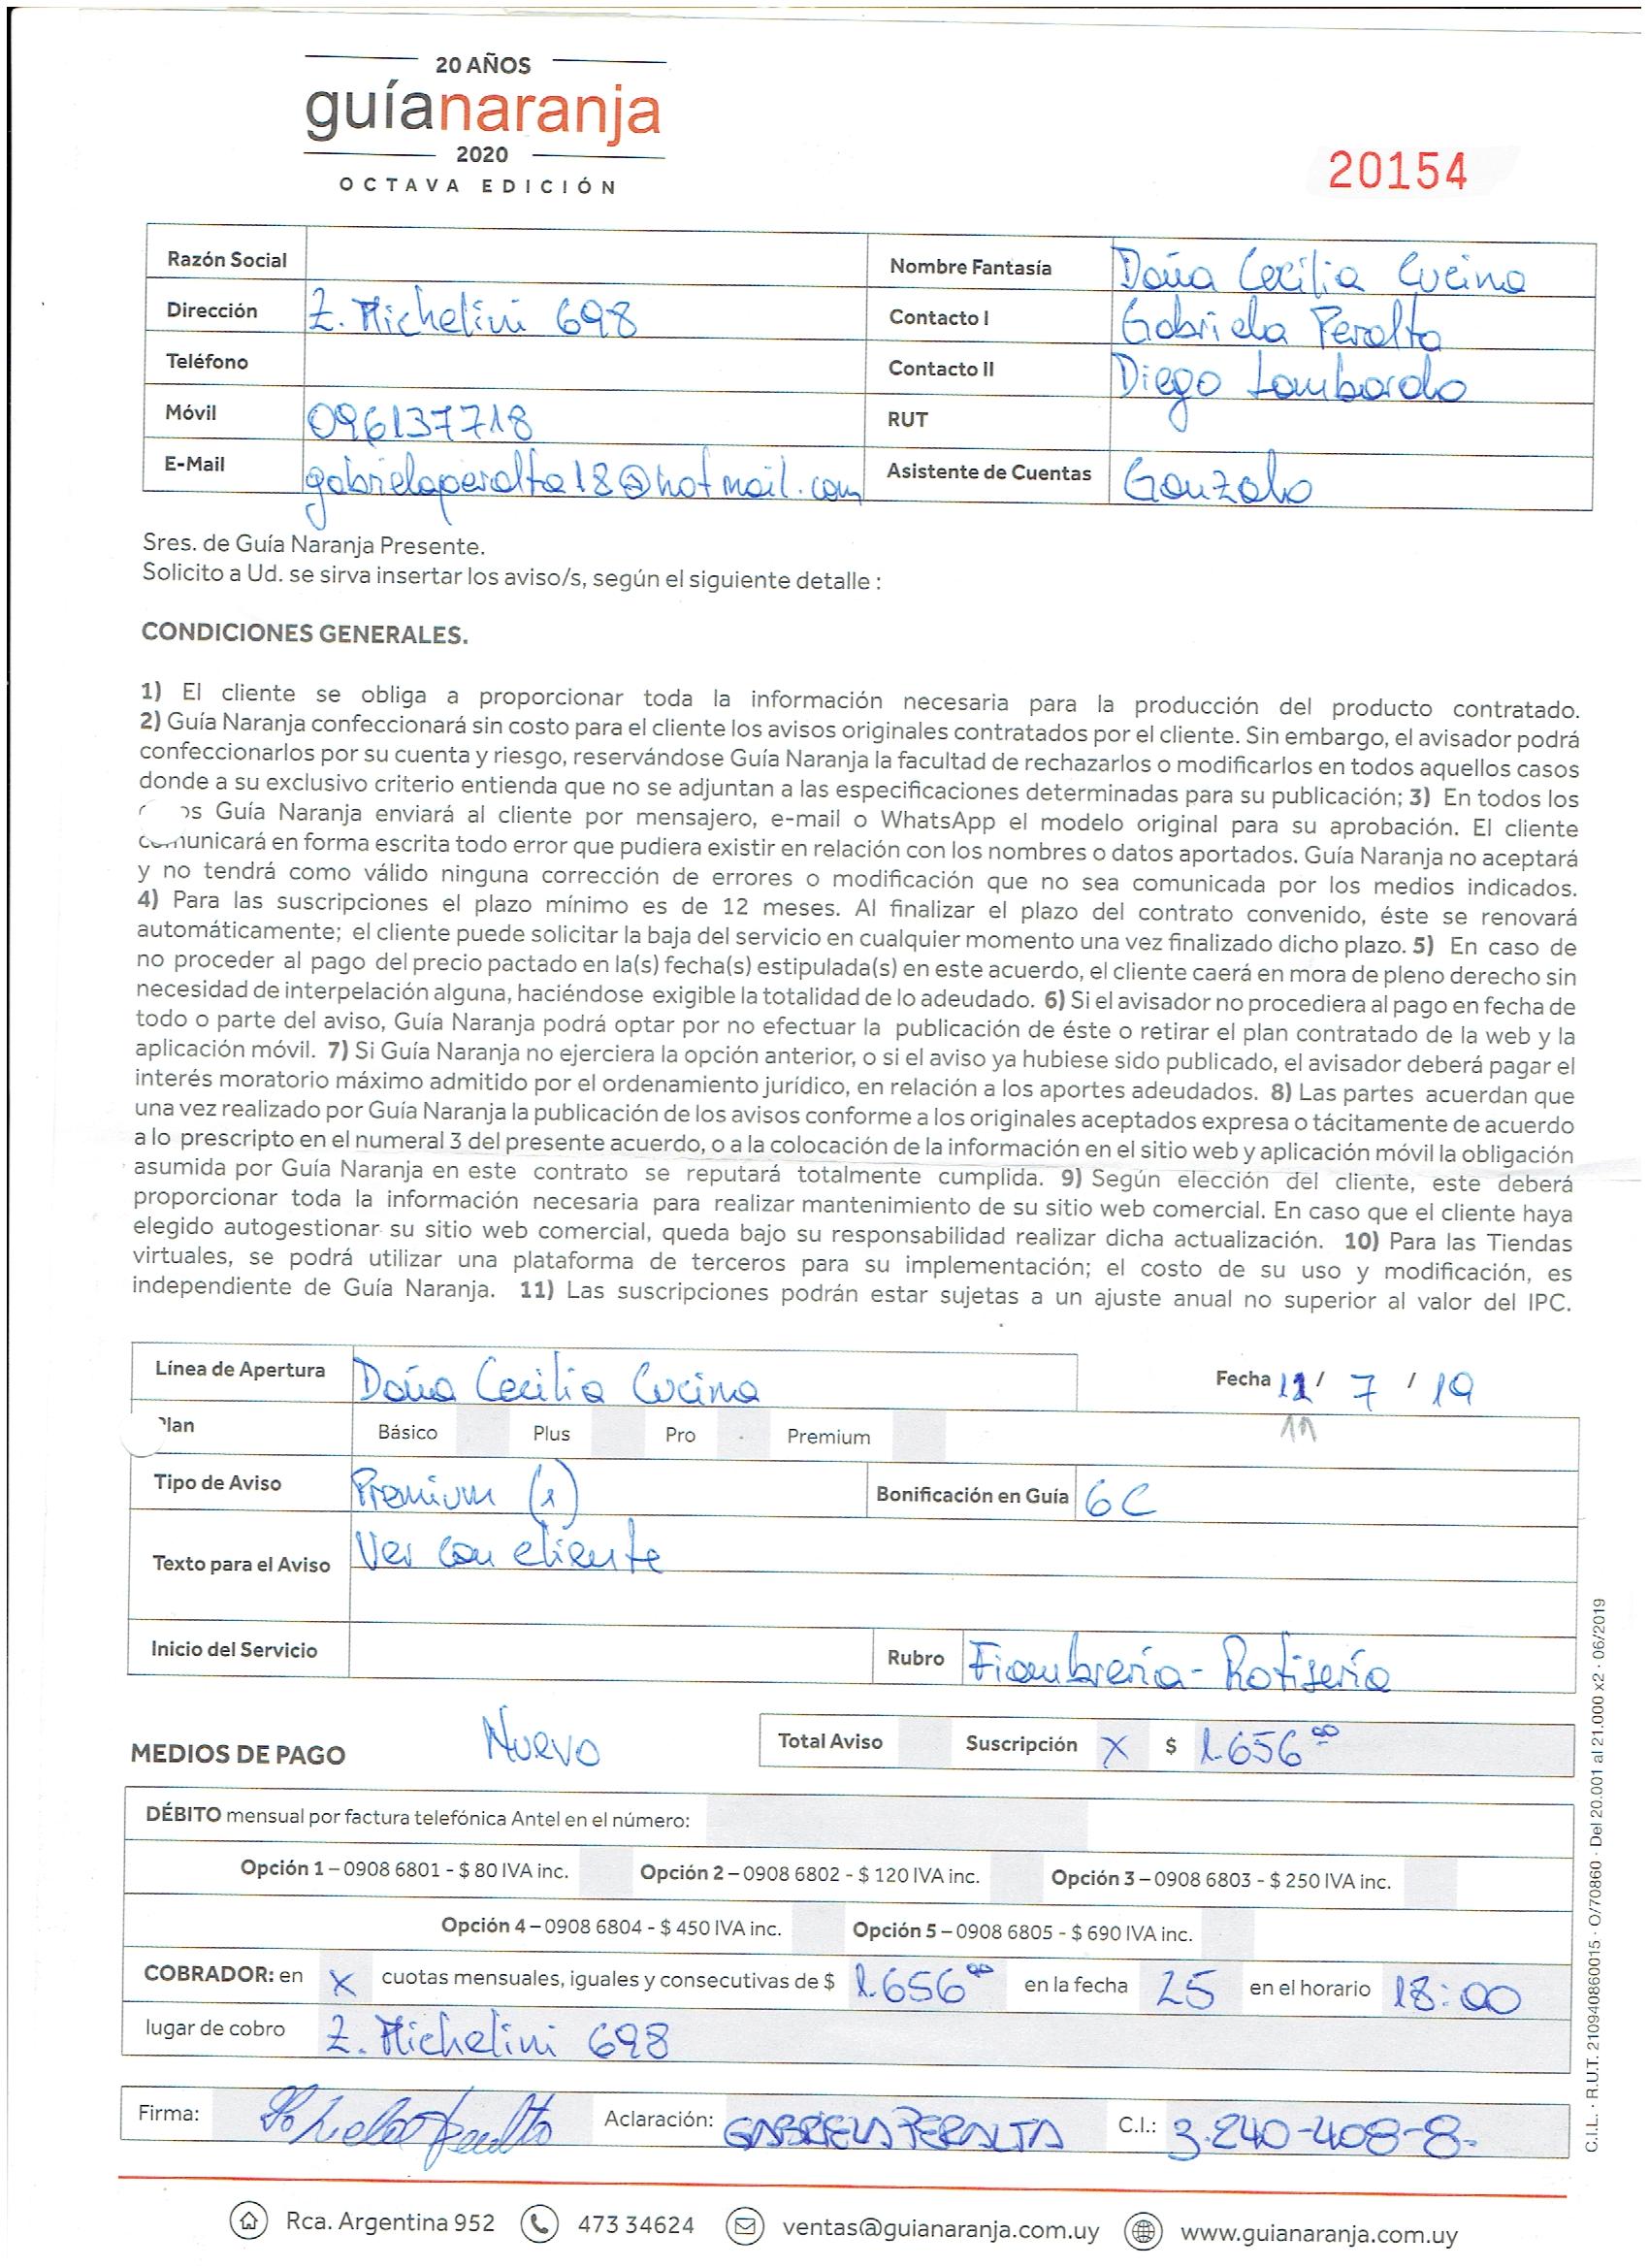 20 AÑOS
guíanaranja
2020
OCTAVA EDICIÓN
20154
Razón Social
Nombre Fantasía Doña Cecilia Cucina
Dirección Z. Michelini 698
Contacto I Gabriela Peralta
Teléfono
Contacto II Diego Lombardo
Móvil 096137718
RUT
E-Mail gabrielaperalta18@hotmail.com
Asistente de Cuentas Gonzalo
Sres. de Guía Naranja Presente.
Solicito a Ud. se sirva insertar los aviso/s, según el siguiente detalle :
CONDICIONES GENERALES.
1) El cliente se obliga a proporcionar toda la información necesaria para la producción del producto contratado.
2) Guía Naranja confeccionará sin costo para el cliente los avisos originales contratados por el cliente. Sin embargo, el avisador podrá
confeccionarlos por su cuenta y riesgo, reservándose Guía Naranja la facultad de rechazarlos o modificarlos en todos aquellos casos
donde a su exclusivo criterio entienda que no se adjuntan a las especificaciones determinadas para su publicación; 3) En todos los
Guía Naranja enviará al cliente por mensajero, e-mail o WhatsApp el modelo original para su aprobación. El cliente
comunicará en forma escrita todo error que pudiera existir en relación con los nombres o datos aportados. Guía Naranja no aceptará
y no tendrá como válido ninguna corrección de errores o modificación que no sea comunicada por los medios indicados.
4) Para las suscripciones el plazo mínimo es de 12 meses. Al finalizar el plazo del contrato convenido, éste se renovará
automáticamente; el cliente puede solicitar la baja del servicio en cualquier momento una vez finalizado dicho plazo. 5) En caso de
no proceder al pago del precio pactado en la(s) fecha(s) estipulada(s) en este acuerdo, el cliente caerá en mora de pleno derecho sin
necesidad de interpelación alguna, haciéndose exigible la totalidad de lo adeudado. 6) Si el avisador no procediera al pago en fecha de
todo o parte del aviso, Guía Naranja podrá optar por no efectuar la publicación de éste o retirar el plan contratado de la web y la
aplicación móvil. 7) Si Guía Naranja no ejerciera la opción anterior, o si el aviso ya hubiese sido publicado, el avisador deberá pagar el
interés moratorio máximo admitido por el ordenamiento jurídico, en relación a los aportes adeudados. 8) Las partes acuerdan que
una vez realizado por Guía Naranja la publicación de los avisos conforme a los originales aceptados expresa o tácitamente de acuerdo
a lo prescripto en el numeral 3 del presente acuerdo, o a la colocación de la información en el sitio web y aplicación móvil la obligación
asumida por Guía Naranja en este contrato se reputará totalmente cumplida. 9) Según elección del cliente, este deberá
proporcionar toda la información necesaria para realizar mantenimiento de su sitio web comercial. En caso que el cliente haya
elegido autogestionar su sitio web comercial, queda bajo su responsabilidad realizar dicha actualización. 10) Para las Tiendas
virtuales, se podrá utilizar una plataforma de terceros para su implementación; el costo de su uso y modificación, es
independiente de Guía Naranja. 11) Las suscripciones podrán estar sujetas a un ajuste anual no superior al valor del IPC.
Línea de Apertura Doña Cecilia Cucina
Fecha 11 / 7 / 19
11
Plan Básico Plus Pro Premium
Tipo de Aviso Premium (1) Bonificación en Guía 6C
Texto para el Aviso Ver con cliente
Inicio del Servicio Rubro Fiambrería - Rotisería
MEDIOS DE PAGO Nuevo
Total Aviso Suscripción X $ 1.656 00
DÉBITO mensual por factura telefónica Antel en el número:
Opción 1 – 0908 6801 - $ 80 IVA inc. Opción 2 – 0908 6802 - $ 120 IVA inc. Opción 3 – 0908 6803 - $ 250 IVA inc.
Opción 4 – 0908 6804 - $ 450 IVA inc. Opción 5 – 0908 6805 - $ 690 IVA inc.
COBRADOR: en X cuotas mensuales, iguales y consecutivas de $ 1.656 00 en la fecha 25 en el horario 18:00
lugar de cobro Z. Michelini 698
Firma: Aclaración: GABRIELA PERALTA C.I.: 3.240-408-8.
Rca. Argentina 952 473 34624 ventas@guianaranja.com.uy www.guianaranja.com.uy
C.I.L. · R.U.T. 210940860015 · O/70860 · Del 20.001 al 21.000 x2 · 06/2019